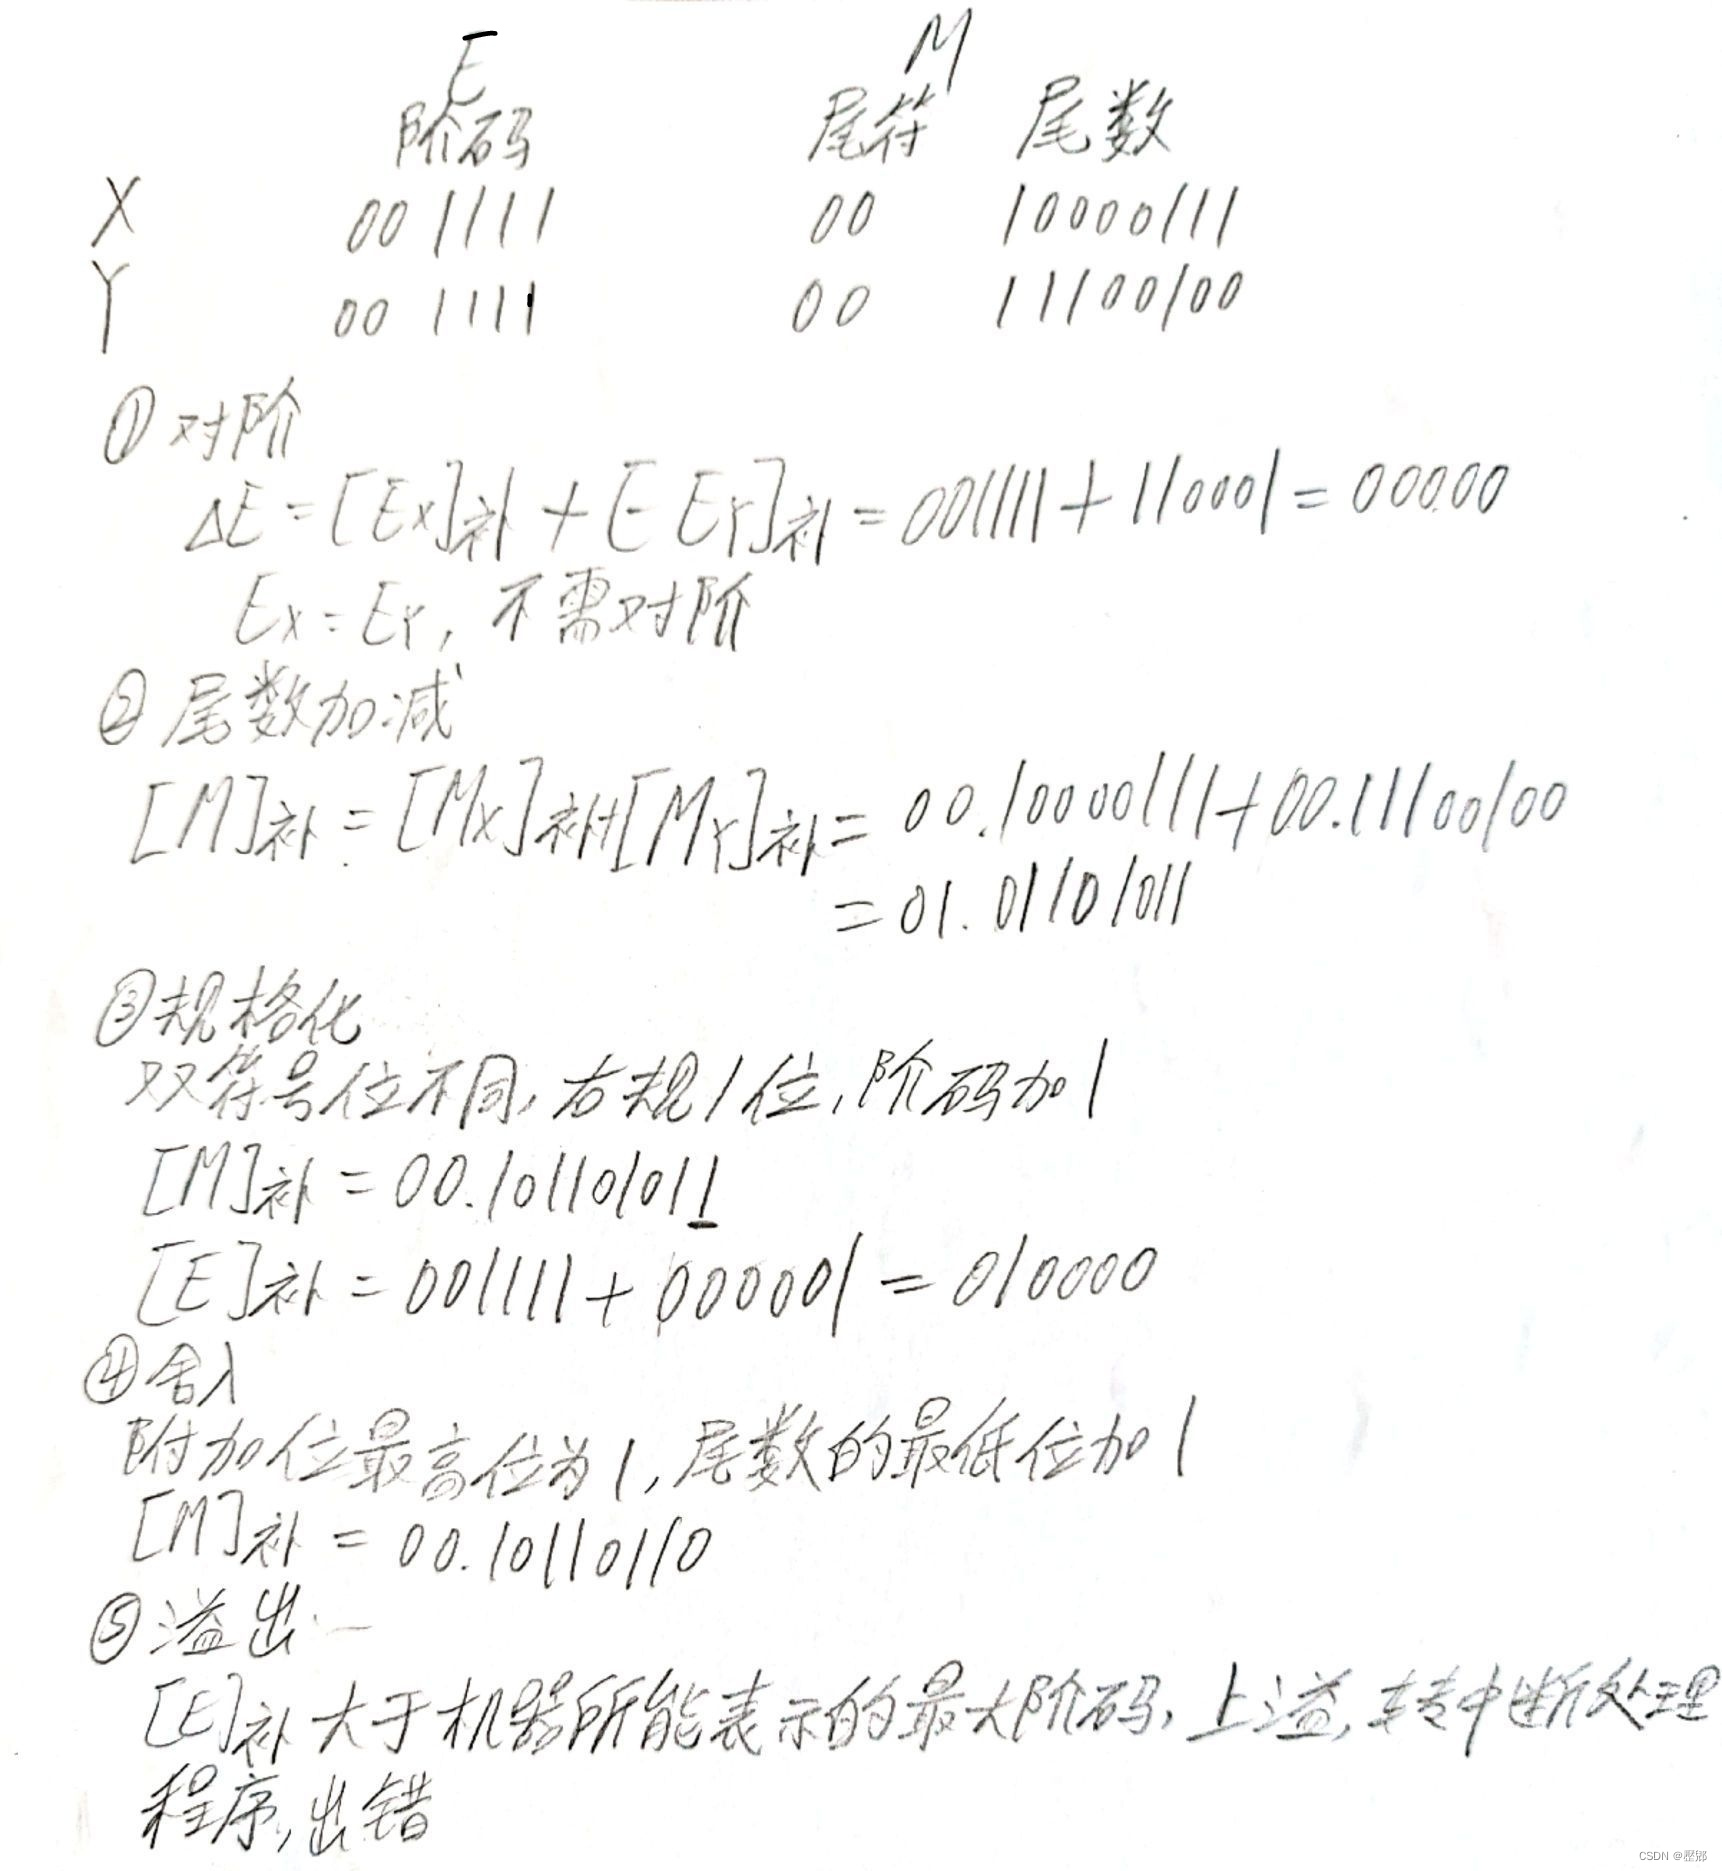 E M
阶码 尾符 尾数
X 00 1111 00 10000111
Y 00 1111 00 11100100
① 对阶
ΔE=[Ex]补+[-EY]补=001111+110001=000000
Ex=EY,不需对阶
② 尾数加减
[M]补=[Mx]补+[MY]补=00.10000111+00.11100100
=01.01101011
③规格化
双符号位不同,右规1位,阶码加1
[M]补=00.101101011
[E]补=001111+000001=010000
④舍入
附加位最高位为1,尾数的最低位加1
[M]补=00.10110110
⑤溢出
[E]补大于机器所能表示的最大阶码,上溢,转中断处理
程序,出错
CSDN @歷鄉